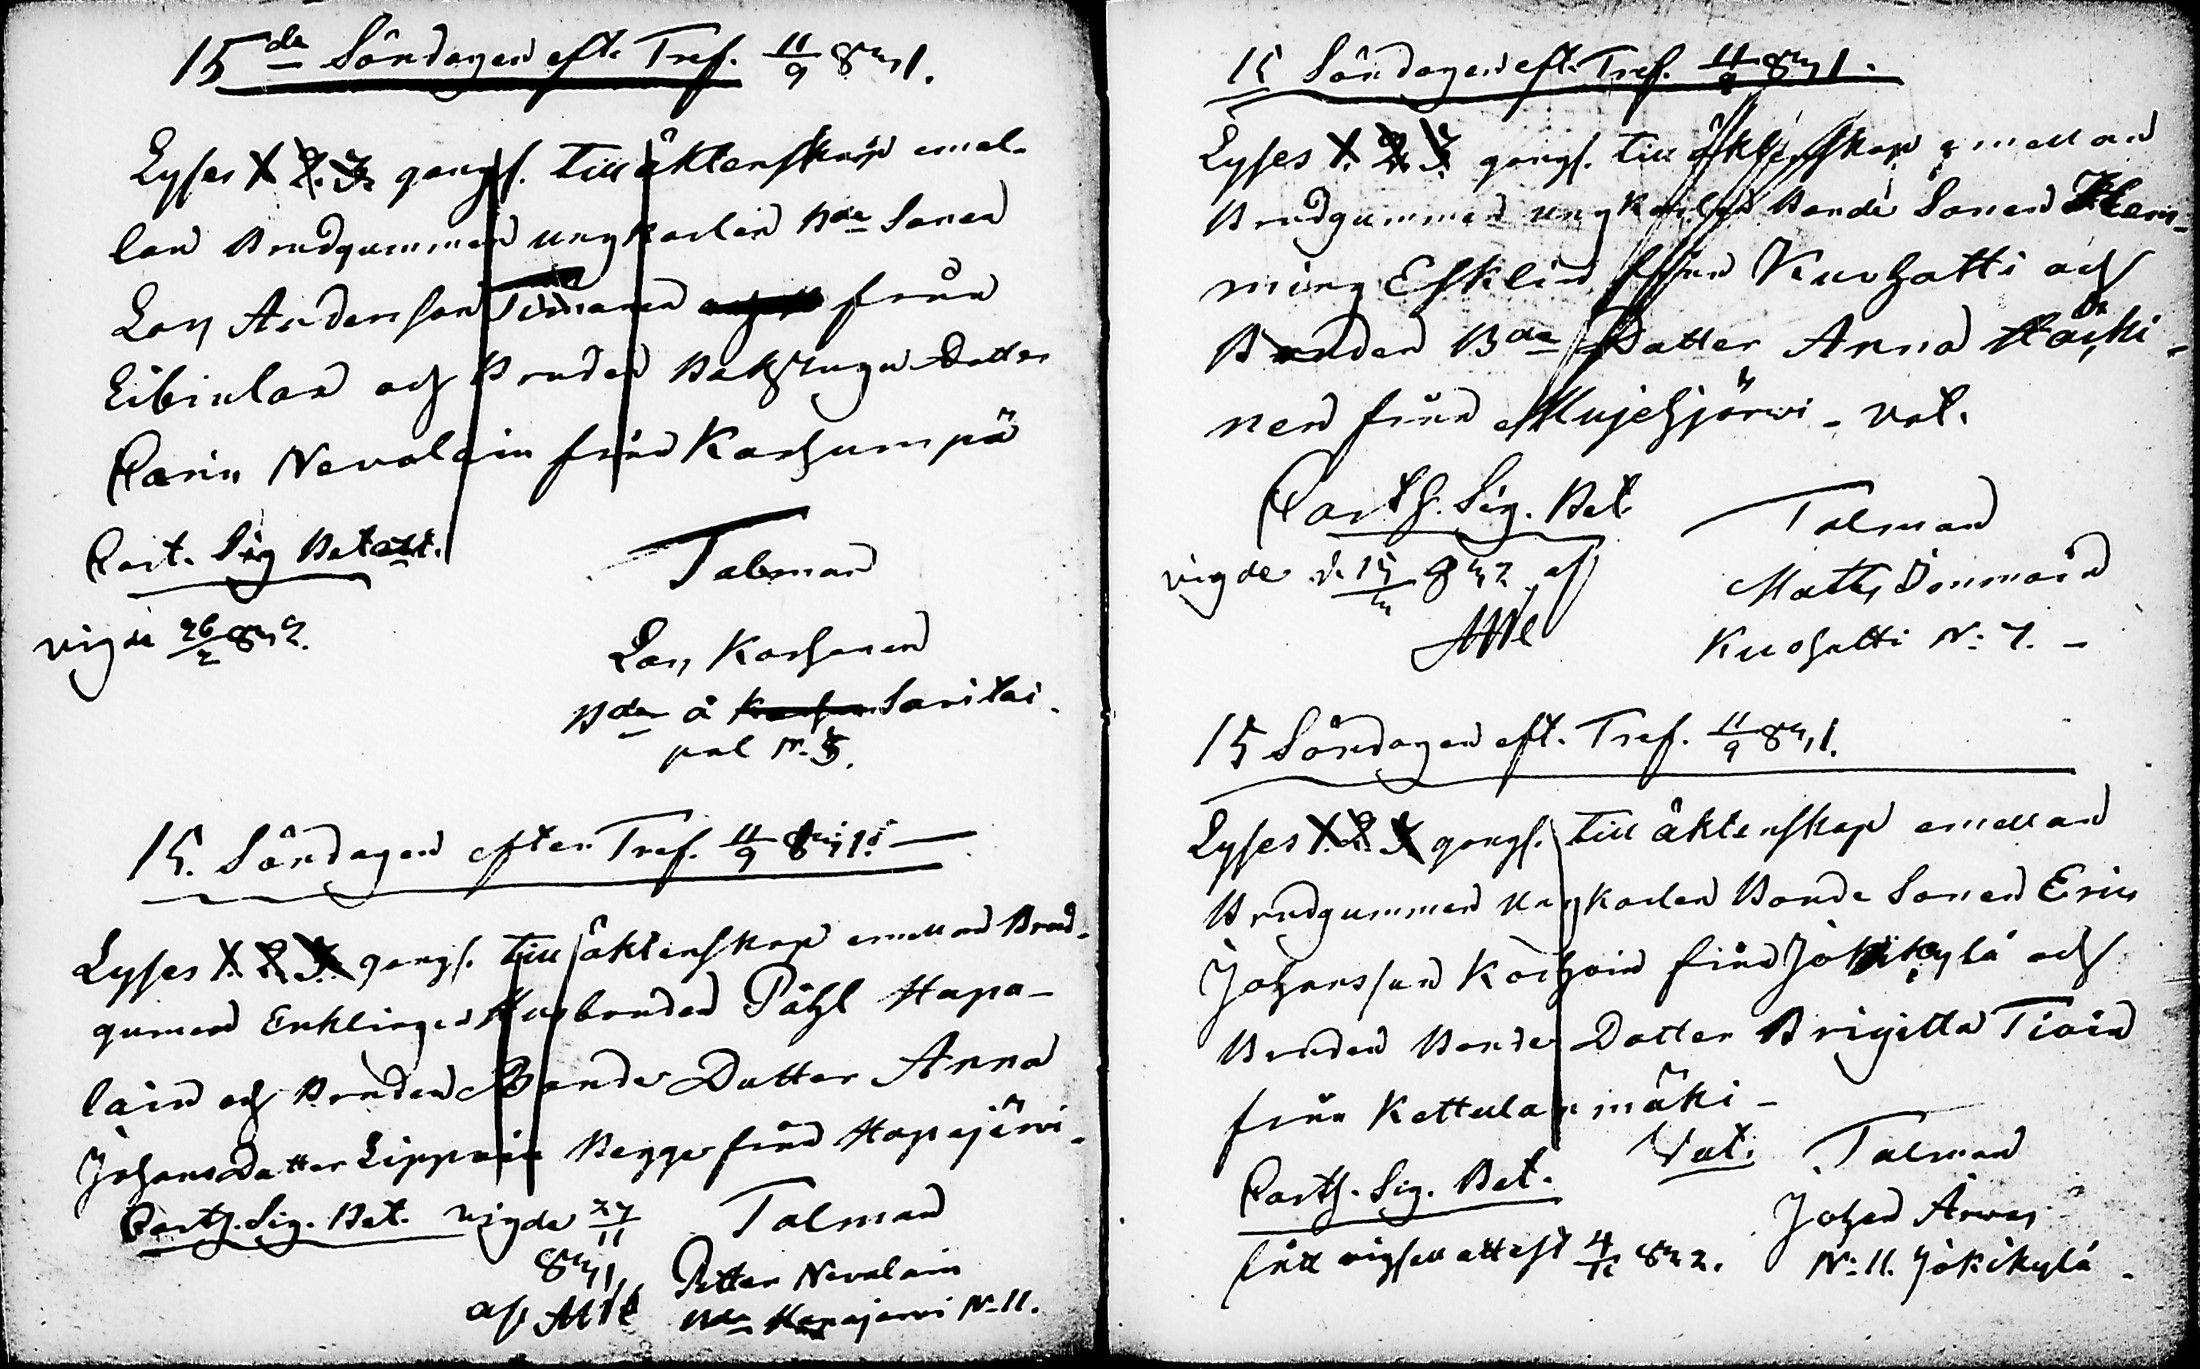 15de Söndagen eft. Tref. 11/9 871.
Lyses 1. 2. 3. gangs. till äktenskap emel-
lan Brudgummen ungkarlen Bde Sonen
Lars Andersson från
och Bruden Datter
Carin Nevalain från Karhumpä
Cart. Sig Bet att.
Talman
vigde 26/2 872.
Lars Karhunen
Bde å Savitai-
pal N. 5.
15. Söndagen efter Tref. 11/9 871.
Lyses 1. 2. 3. gangs. till äktenskap emellan Brud-
gumen Enklingen Husbonden Påhl Hapa-
lain och Bruden Bonde Datter Anna
Johans Datter Lippoin Begge från Hapajärvi.
Carth. Sig. Bet. vigde 27/11 Talman
871, Petter Nevalain
af Bde Hapajarvi N. 11.
15 Söndagen eft. Tref. 11/9 871.
Lyses 1. 2. 3. gangs. till äktenskap emellan
Brudgummen ungkarlen Bonde Sonen Hen-
ming Eskelin från Kuohatti och
Bruden Bde Datter Anna
nen från Mujehjärvi - vat.
Carth. Sig. Bet. Talman
vigde d. 15/ 872 af Matts
Kuohatti N: 7. -
15 Söndagen eft. Tref. 11/9 871.
Lyses 1. 2. 3. gangs. till äktenskap emellan
Brudgummen ungkarlen Bonde Sonen Eric
Johansson från Jokikylä och
Bruden Bonde Datter Brigitta Tiain
från Kettulanmäki -
Vat. Talman
Carth. Sig. Bet.
Johan
fått vigsel attest 872. N: 11. Jokikylä.